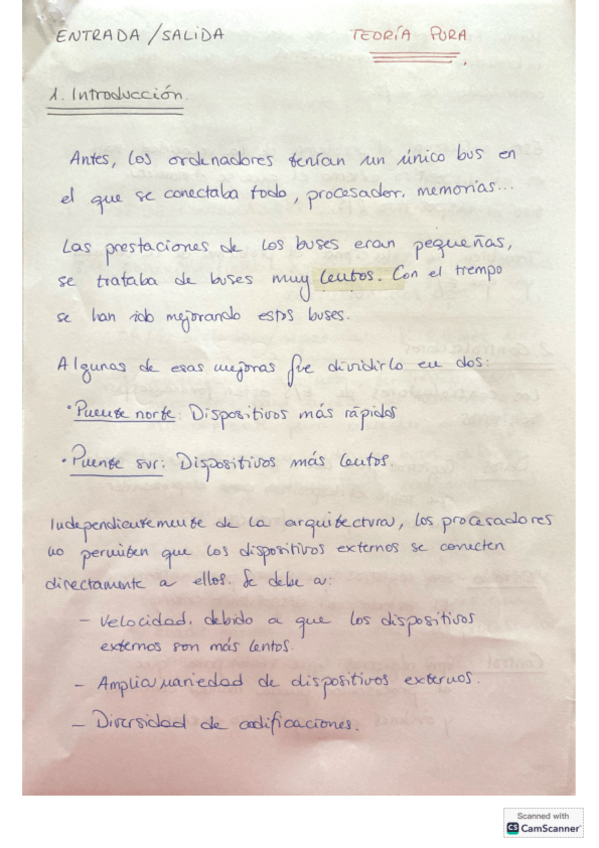 ENTRADA/SALIDA
TEORÍA PURA.
1. Introducción.
Antes, los ordenadores tenían un único bus en
el que se conectaba todo, procesador, memorias...
Las prestaciones de los buses eran pequeñas,
se trataba de buses muy lentos. Con el tiempo
se han ido mejorando estos buses.
Algunas de esas mejoras fue dividirlo en dos:
· Puente norte: Dispositivos más rápidos
· Puente sur: Dispositivos más lentos.
Independientemente de la arquitectura, los procesadores
no permiten que los dispositivos externos se conecten
directamente a ellos. Se debe a:
- Velocidad, debido a que los dispositivos
externos son más lentos.
- Amplia variedad de dispositivos externos.
- Diversidad de codificaciones.
Scanned with
CS CamScanner